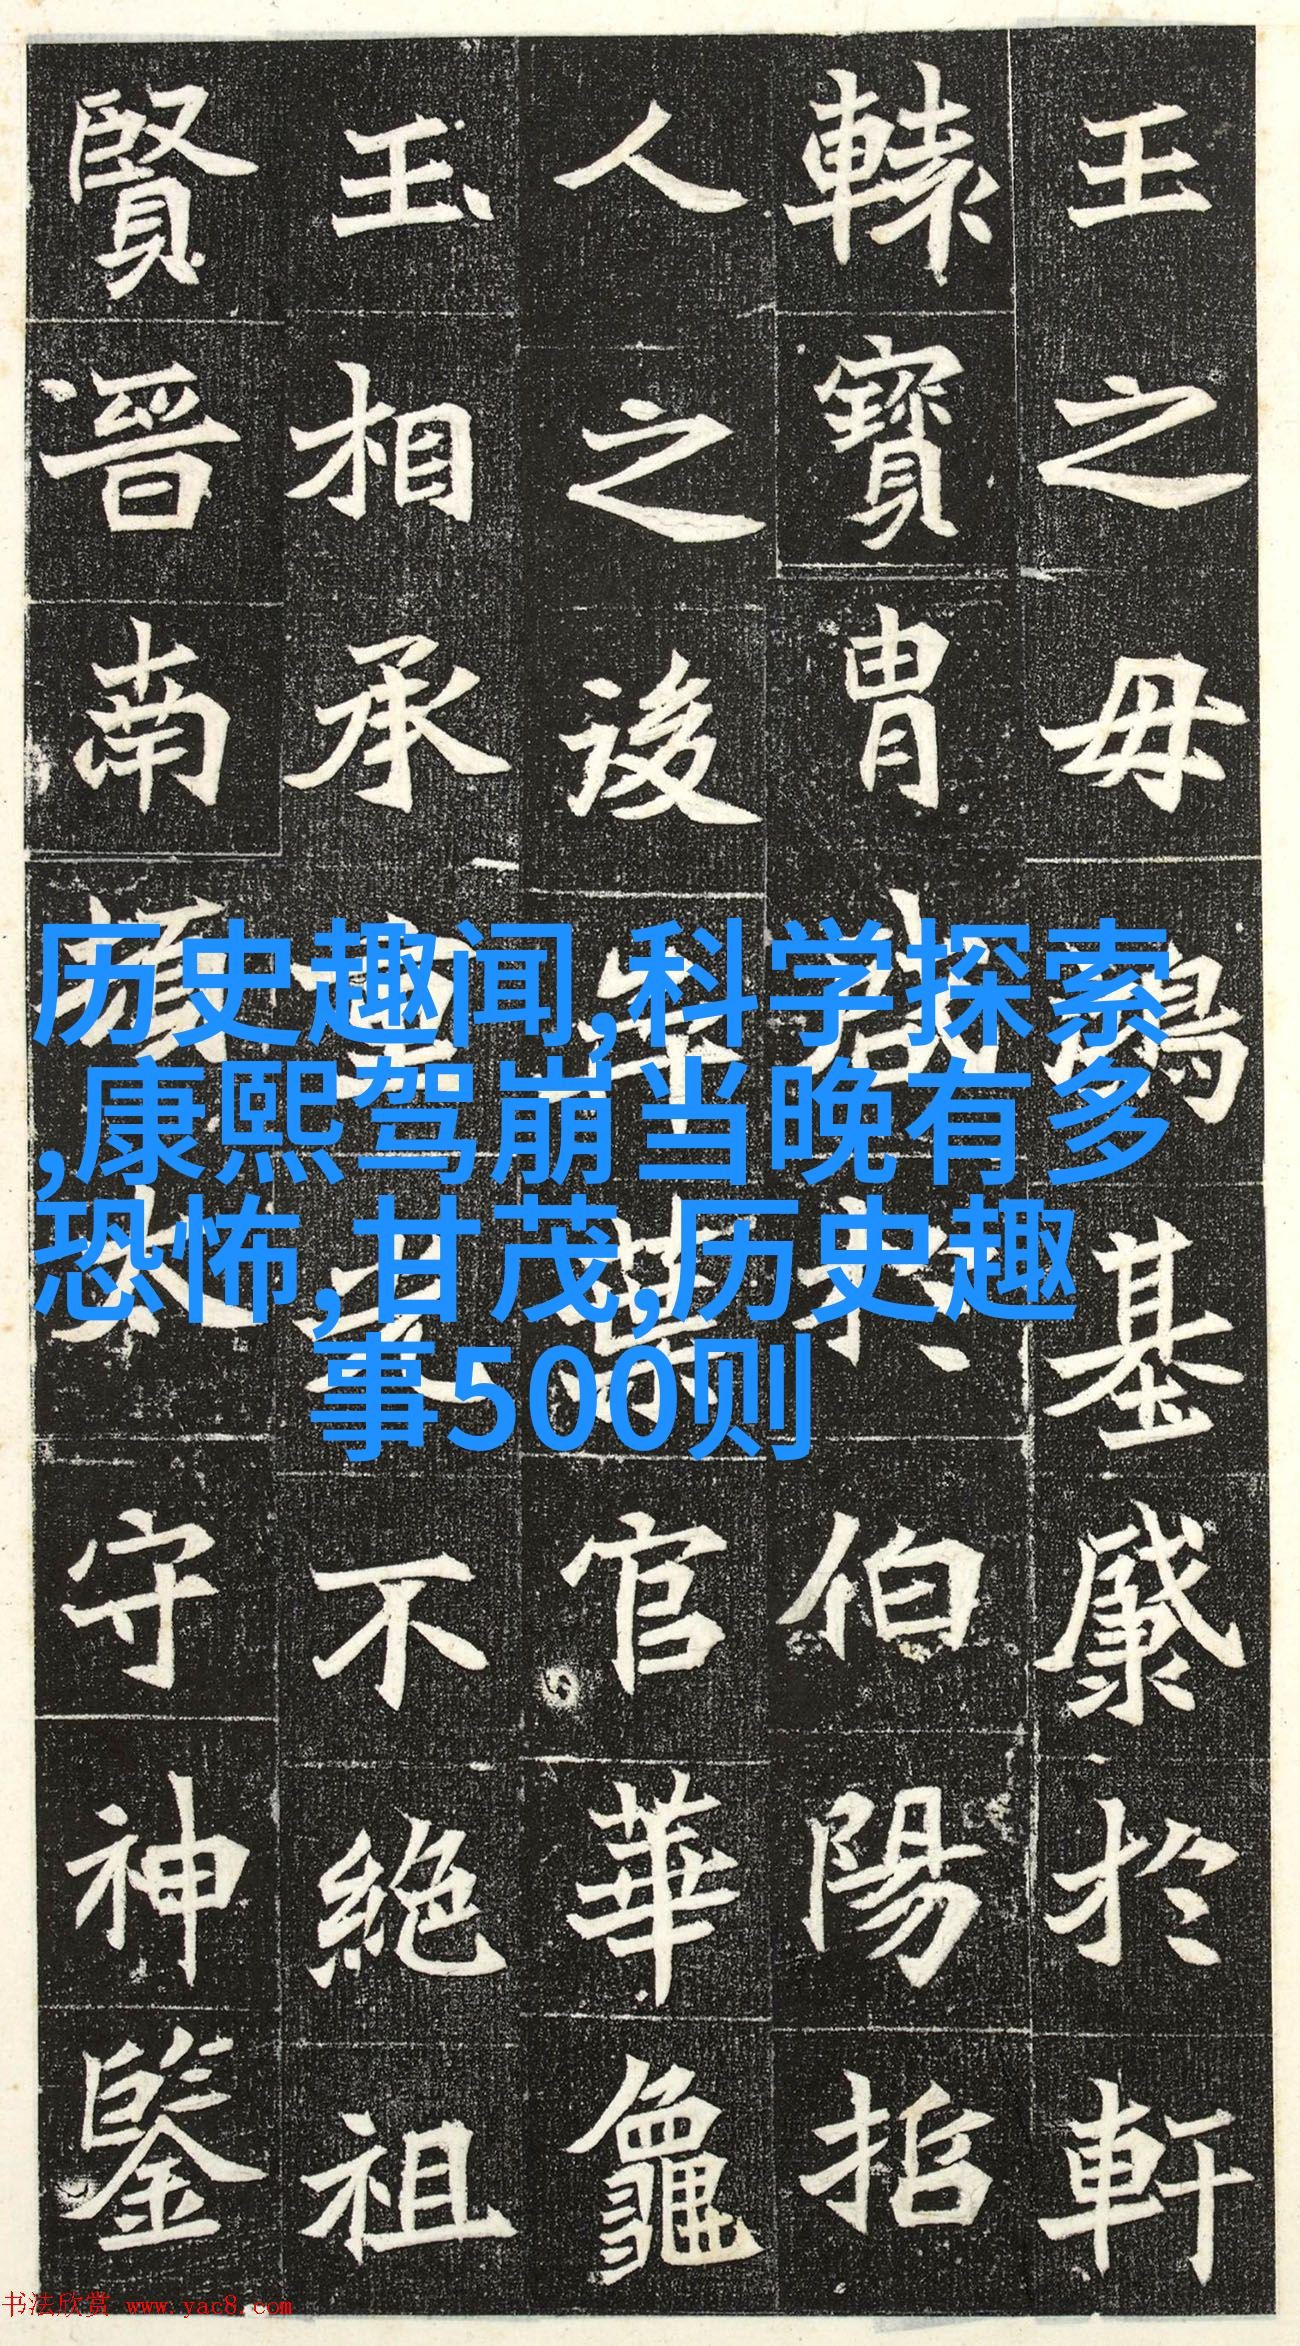 王之毋鴻基於軒
轅寶胄伯陽招
人之後官華龜
玉相承不絕祖
賢晉南頓太守神鑒
历史趣闻,科学探索
,康熙驾崩当晚有多
恐怖,甘茂,历史趣
事500则
书法欣赏 www.yac8.com